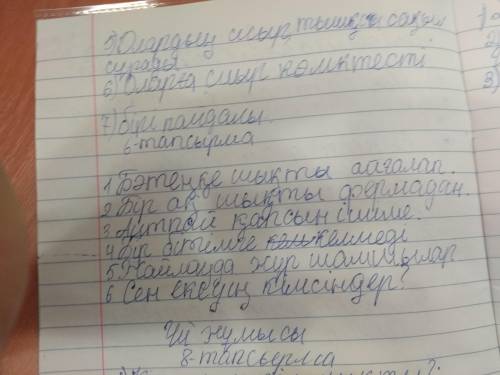 5) Олардың сиыр тышқан сақын
сұрады
6) Оларға сиыр көмктесті
7) Бұл пайдалы.
6-тапсырма
1 Бәтеңке шықты аағалап.
2 Бір ақ шықты фермадан.
3 Айтпай қапсың ішіме.
4 Бір бітімге келмеді
5 Жайлауда жүр малшылар
6 Сен екеуің кімсіңдер?
Үй жұмысы
8-тапсырма